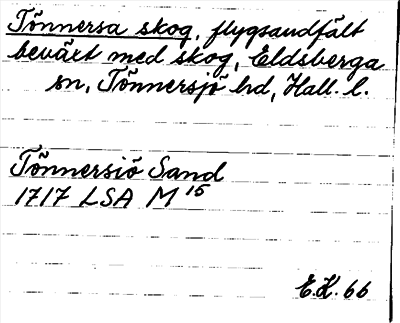 Tönnersa skog, flygsandfält
beväxt med skog, Eldsberga
sn, Tönnersjö hd, Hall. l.
Tönnersiö Sand
1717 LSA M 15
E.K. 66